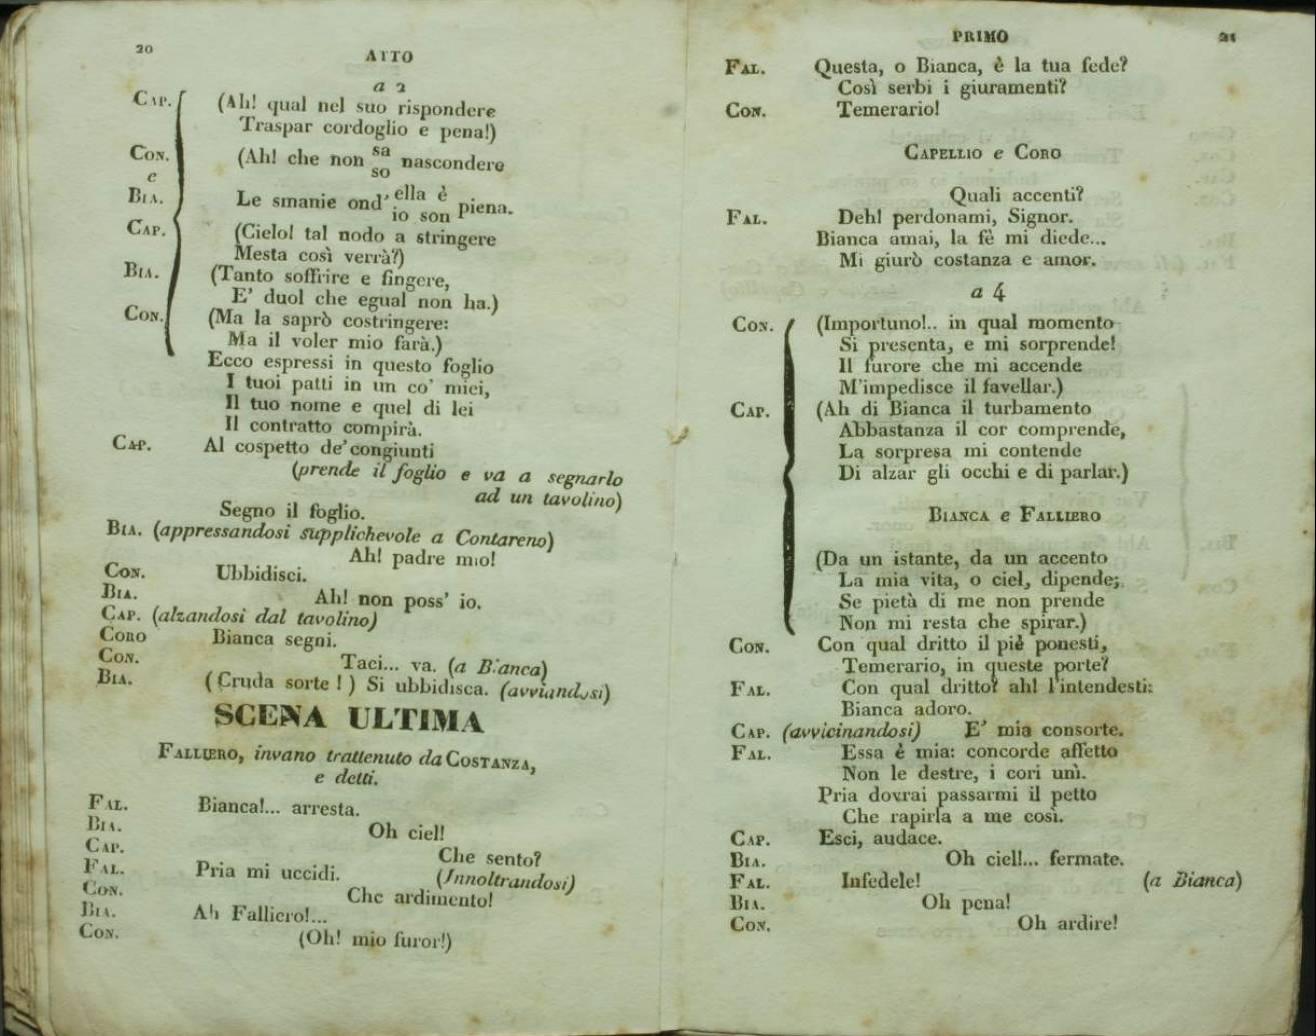 20
ATTO
a 2
CAP. (Ah! qual nel suo rispondere
Traspar cordoglio e pena!)
CON. e BIA. (Ah! che non sa so nascondere
Le smanie ond' ella è io son piena.
CAP. (Cielo! tal nodo a stringere
Mesta così verrà?)
BIA. (Tanto soffrire e fingere,
E' duol che egual non ha.)
CON. (Ma la saprò costringere:
Ma il voler mio farà.)
Ecco espressi in questo foglio
I tuoi patti in un co' miei,
Il tuo nome e quel di lei
Il contratto compirà.
CAP. Al cospetto de' congiunti
(prende il foglio e va a segnarlo
ad un tavolino)
Segno il foglio.
BIA. (appressandosi supplichevole a Contareno)
Ah! padre mio!
CON. Ubbidisci.
BIA. Ah! non poss' io.
CAP. (alzandosi dal tavolino)
CORO Bianca segni.
CON. Taci... va. (a Bianca)
BIA. (Cruda sorte!) Si ubbidisca. (avviandosi)
SCENA ULTIMA
FALLIERO, invano trattenuto da COSTANZA,
e detti.
FAL. Bianca!... arresta.
BIA. Oh ciel!
CAP. Che sento?
FAL. Pria mi uccidi. (Innoltrandosi)
CON. Che ardimento!
BIA. Ah Falliero!...
CON. (Oh! mio furor!)
PRIMO
21
FAL. Questa, o Bianca, è la tua fede?
Così serbi i giuramenti?
CON. Temerario!
CAPELLIO e CORO
Quali accenti?
FAL. Deh! perdonami, Signor.
Bianca amai, la fè mi diede...
Mi giurò costanza e amor.
a 4
CON. (Importuno!.. in qual momento
Si presenta, e mi sorprende!
Il furore che mi accende
M'impedisce il favellar.)
CAP. (Ah di Bianca il turbamento
Abbastanza il cor comprende,
La sorpresa mi contende
Di alzar gli occhi e di parlar.)
BIANCA e FALLIERO
(Da un istante, da un accento
La mia vita, o ciel, dipende;
Se pietà di me non prende
Non mi resta che spirar.)
CON. Con qual dritto il piè ponesti,
Temerario, in queste porte?
FAL. Con qual dritto? ah! l'intendesti:
Bianca adoro.
CAP. (avvicinandosi) E' mia consorte.
FAL. Essa è mia: concorde affetto
Non le destre, i cori unì.
Pria dovrai passarmi il petto
Che rapirla a me così.
CAP. Esci, audace.
BIA. Oh ciel!... fermate.
FAL. Infedele! (a Bianca)
BIA. Oh pena!
CON. Oh ardire!